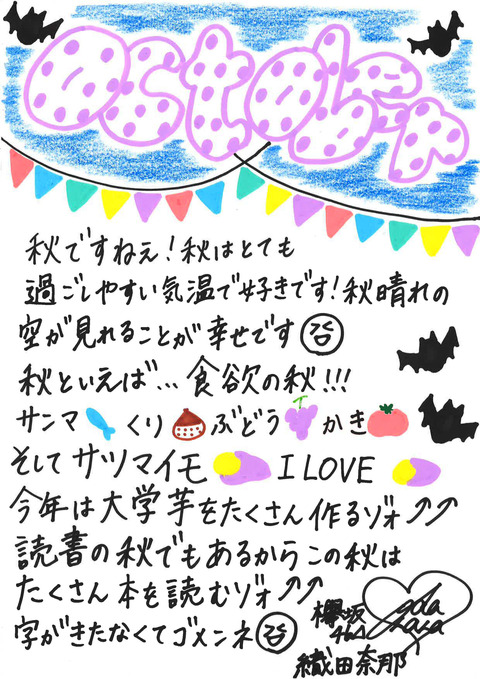 octobeR
秋ですねぇ!秋はとても
過ごしやすい気温で好きです!秋晴れの
空が見れることが幸せです
秋といえば…食欲の秋!!!
サンマ くり ぶどう かき
そして サツマイモ I LOVE
今年は大学芋をたくさん作るゾォ⤴⤴
読書の秋でもあるからこの秋は
たくさん本を読むゾォ⤴⤴
字がきたなくてゴメンネ
欅坂
46
織田奈那
oda
nana